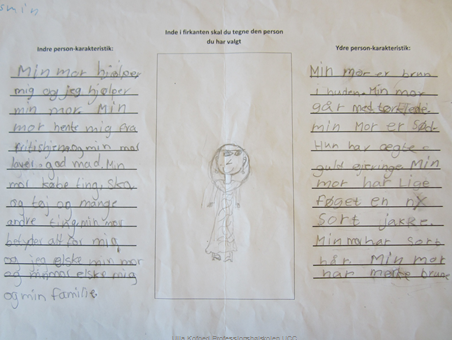 Inde i firkanten skal du tegne den person
du har valgt
Indre person-karakteristik:
Min mor hjælper
mig og jeg hjælper
min mor. Min
mor hente mig fra
og min mor
laver gad mad. Min
mor købe ting. Sko
og tøj og mange
andre ting. min mor
betyder alt for mig
og jeg elske min mor
og elske mig
og min familie.
Ydre person-karakteristik:
Min mor er brun
i huden. Min mor
går med tørklæde.
min Mor er Sød.
Hun har ægte
guld øjeringe Min
mor har Lige
føget en ny
Sort jakke.
Min mor har sort
hår. Min mor
har mørke brune